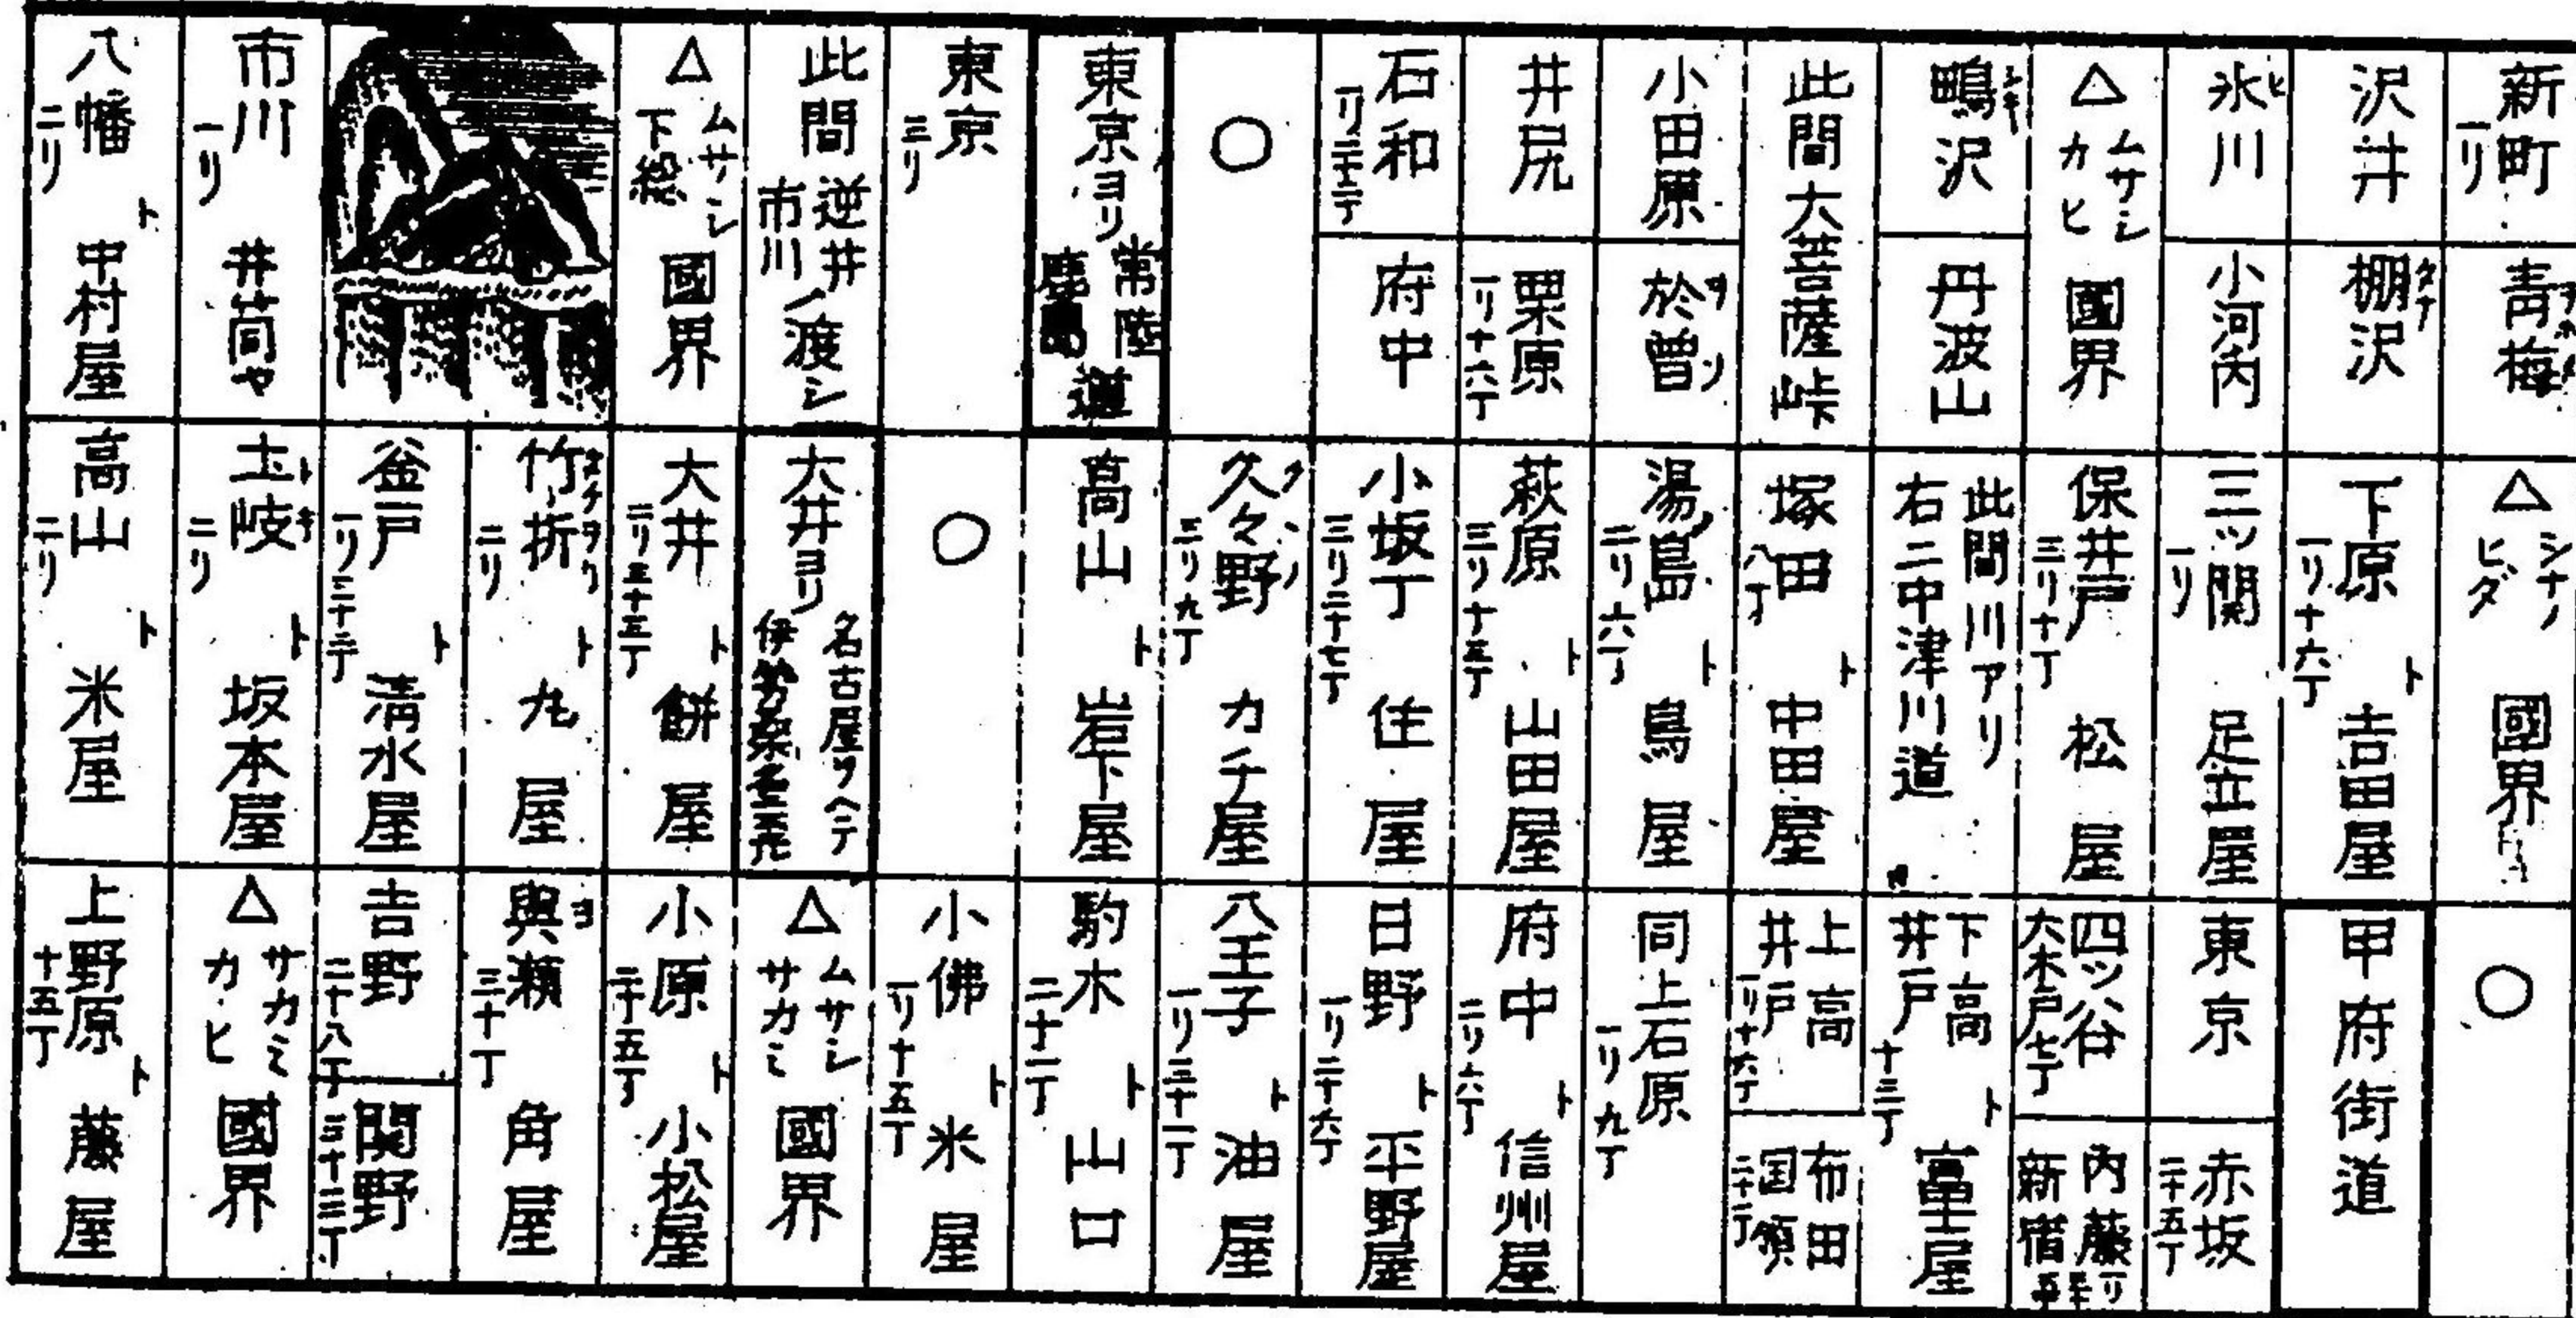 新町 一リ
青梅
沢井
棚沢 タナ
氷川 ヒ
小河内
△ ムサシ カヒ 國界
鴨沢
丹波山
此間大菩薩峠
小田原
於曽 ヲソ
井尻
栗原 一リ十六丁
石和
府中
○
東京ヨリ 常陸 鹿島 道
東京 三リ
此間 逆井 市川ノ渡シ
△ ムサシ 下総 國界
市川 一リ 井筒ヤ
八幡 二リ ト 中村屋
△ シナノ ヒダ 國界
下原 一リ十六丁 ト 吉田屋
三ツ関 一リ 足立屋
保井戸 三リ十丁 松屋
此間川アリ
右ニ中津川道
塚田 八丁 ト 中田屋
湯ノ島 二リ六丁 ト 鳥屋
萩原 三リ十三丁 ト 山田屋
小坂丁 三リ二十七丁 住屋
久々野 クヽノ 三リ九丁 カチ屋
高山 ト 岩下屋
○
大井ヨリ 名古屋ヲヘテ 伊勢桑名
大井 二リ三十三丁 ト 餅屋
竹折 タチヲリ 二リ ト 丸屋
釜戸 ト 清水屋
土岐 トキ 二リ ト 坂本屋
高山 二リ ト 米屋
○
甲府街道
東京
赤坂 二十五丁
四ツ谷 大木戸 七丁
内藤 新宿
下高 井戸 十三丁 ト 富士屋
上高 井戸 一リ十六丁
布田 国領 二十一丁
同上石原 一リ九丁
府中 二リ六丁 ト 信州屋
日野 一リ二十六丁 ト 平野屋
八王子 一リ三十一丁 ト 油屋
駒木 二十一丁 ト 山口
小佛 一リ十五丁 ト 米屋
△ ムサシ サカミ 國界
小原 二十五丁 ト 小松屋
與瀬 ヨ 三十丁 角屋
吉野 二十八丁
関野 三十三丁
△ サカミ カヒ 國界
上野原 十五丁 ト 藤屋